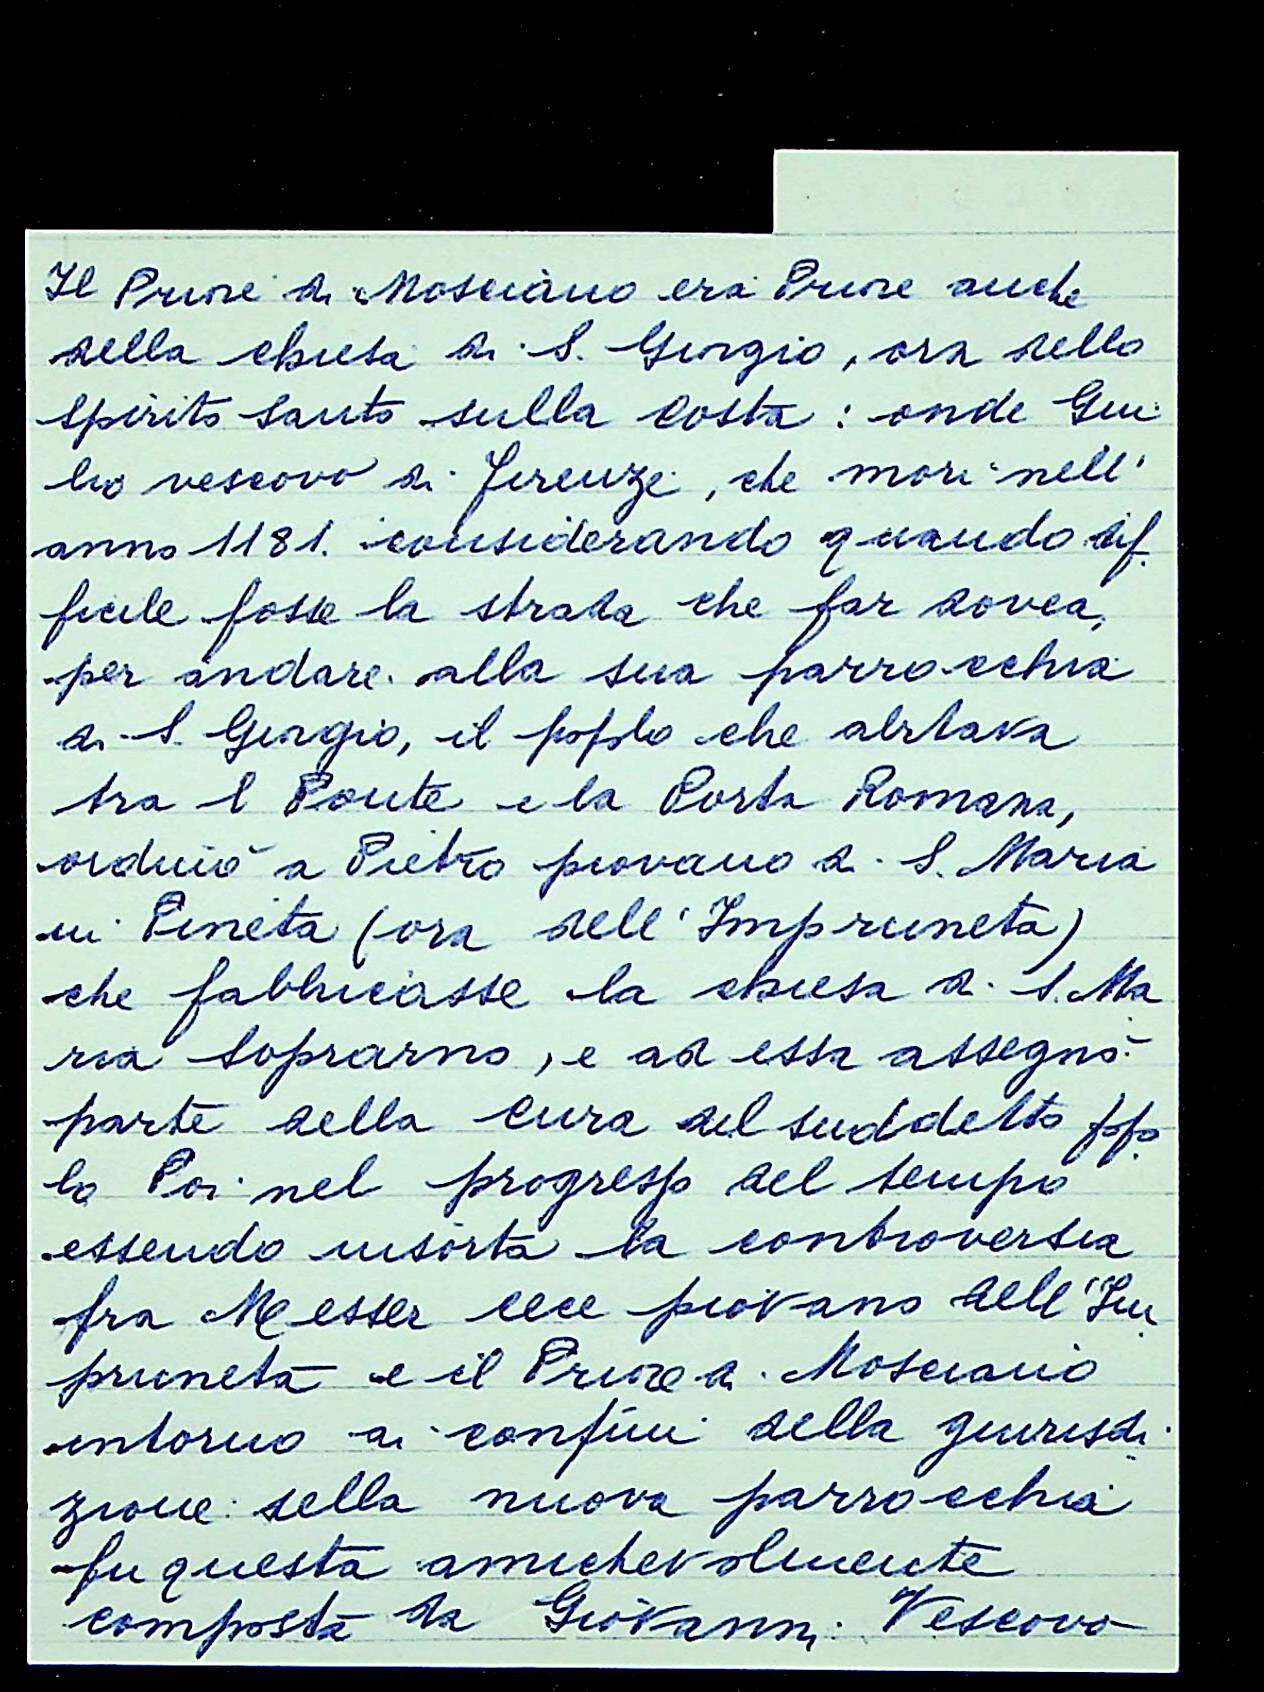 Il Priore di Mosciano era Priore anche
della chiesa di S. Giorgio, ora dello
Spirito Santo sulla Costa: onde Giu
lio vescovo di Firenze, che morì nell'
anno 1181. considerando quando dif
ficile fosse la strada che far dovea,
per andare alla sua parrocchia
di S. Giorgio, il popolo che abitava
tra l Ponte e la Porta Romana,
ordinò a Pietro piovano di S. Maria
in Pineta (ora dell'Impruneta)
che fabbricasse la chiesa di S. Ma
ria Soprarno, e ad essa assegnò
parte della Cura del suddetto popo
lo Poi nel progresso del tempo
essendo insorta la controversia
fra Messer piovano dell'Im
pruneta e il Priore di Mosciano
intorno ai confini della giurisdi
zione della nuova parrocchia
fu questa amichevolmente
composta da Giovanni Vescovo